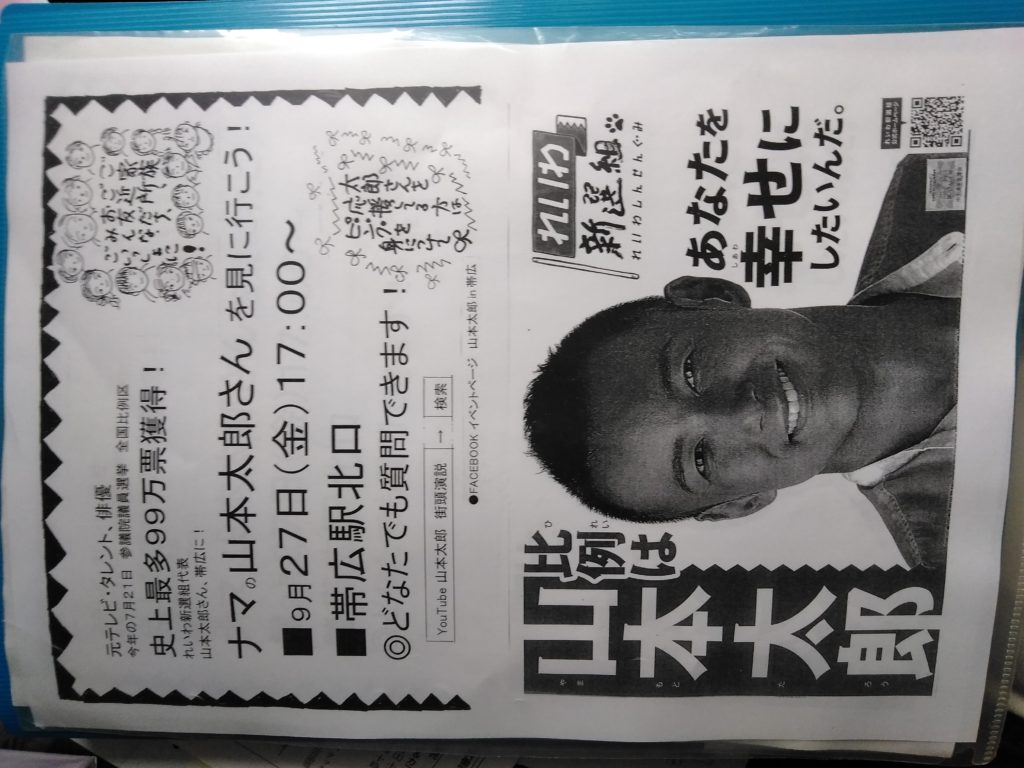 元テレビ・タレント、俳優
今年の7月21日 参議院議員選挙 全国比例区
史上最多99万票獲得！
れいわ新選組代表
山本太郎さん、帯広に！
ナマの山本太郎さん を見に行こう！
ご家族
ご近所
お友達
みんな
ごいっしょに！
■9月27日（金）17：00～
■帯広駅北口
◎どなたでも質問できます！
太郎さんを
応援してる方は
ピンクを
身につけて
YouTube 山本太郎 街頭演説 → 検索
●FACEBOOK イベントページ 山本太郎 in 帯広
れいわ
新選組
れいわしんせんぐみ
あなたを
しあわ
幸せに
したいんだ。
ひ れい
比例は
山本太郎
やま もと た ろう